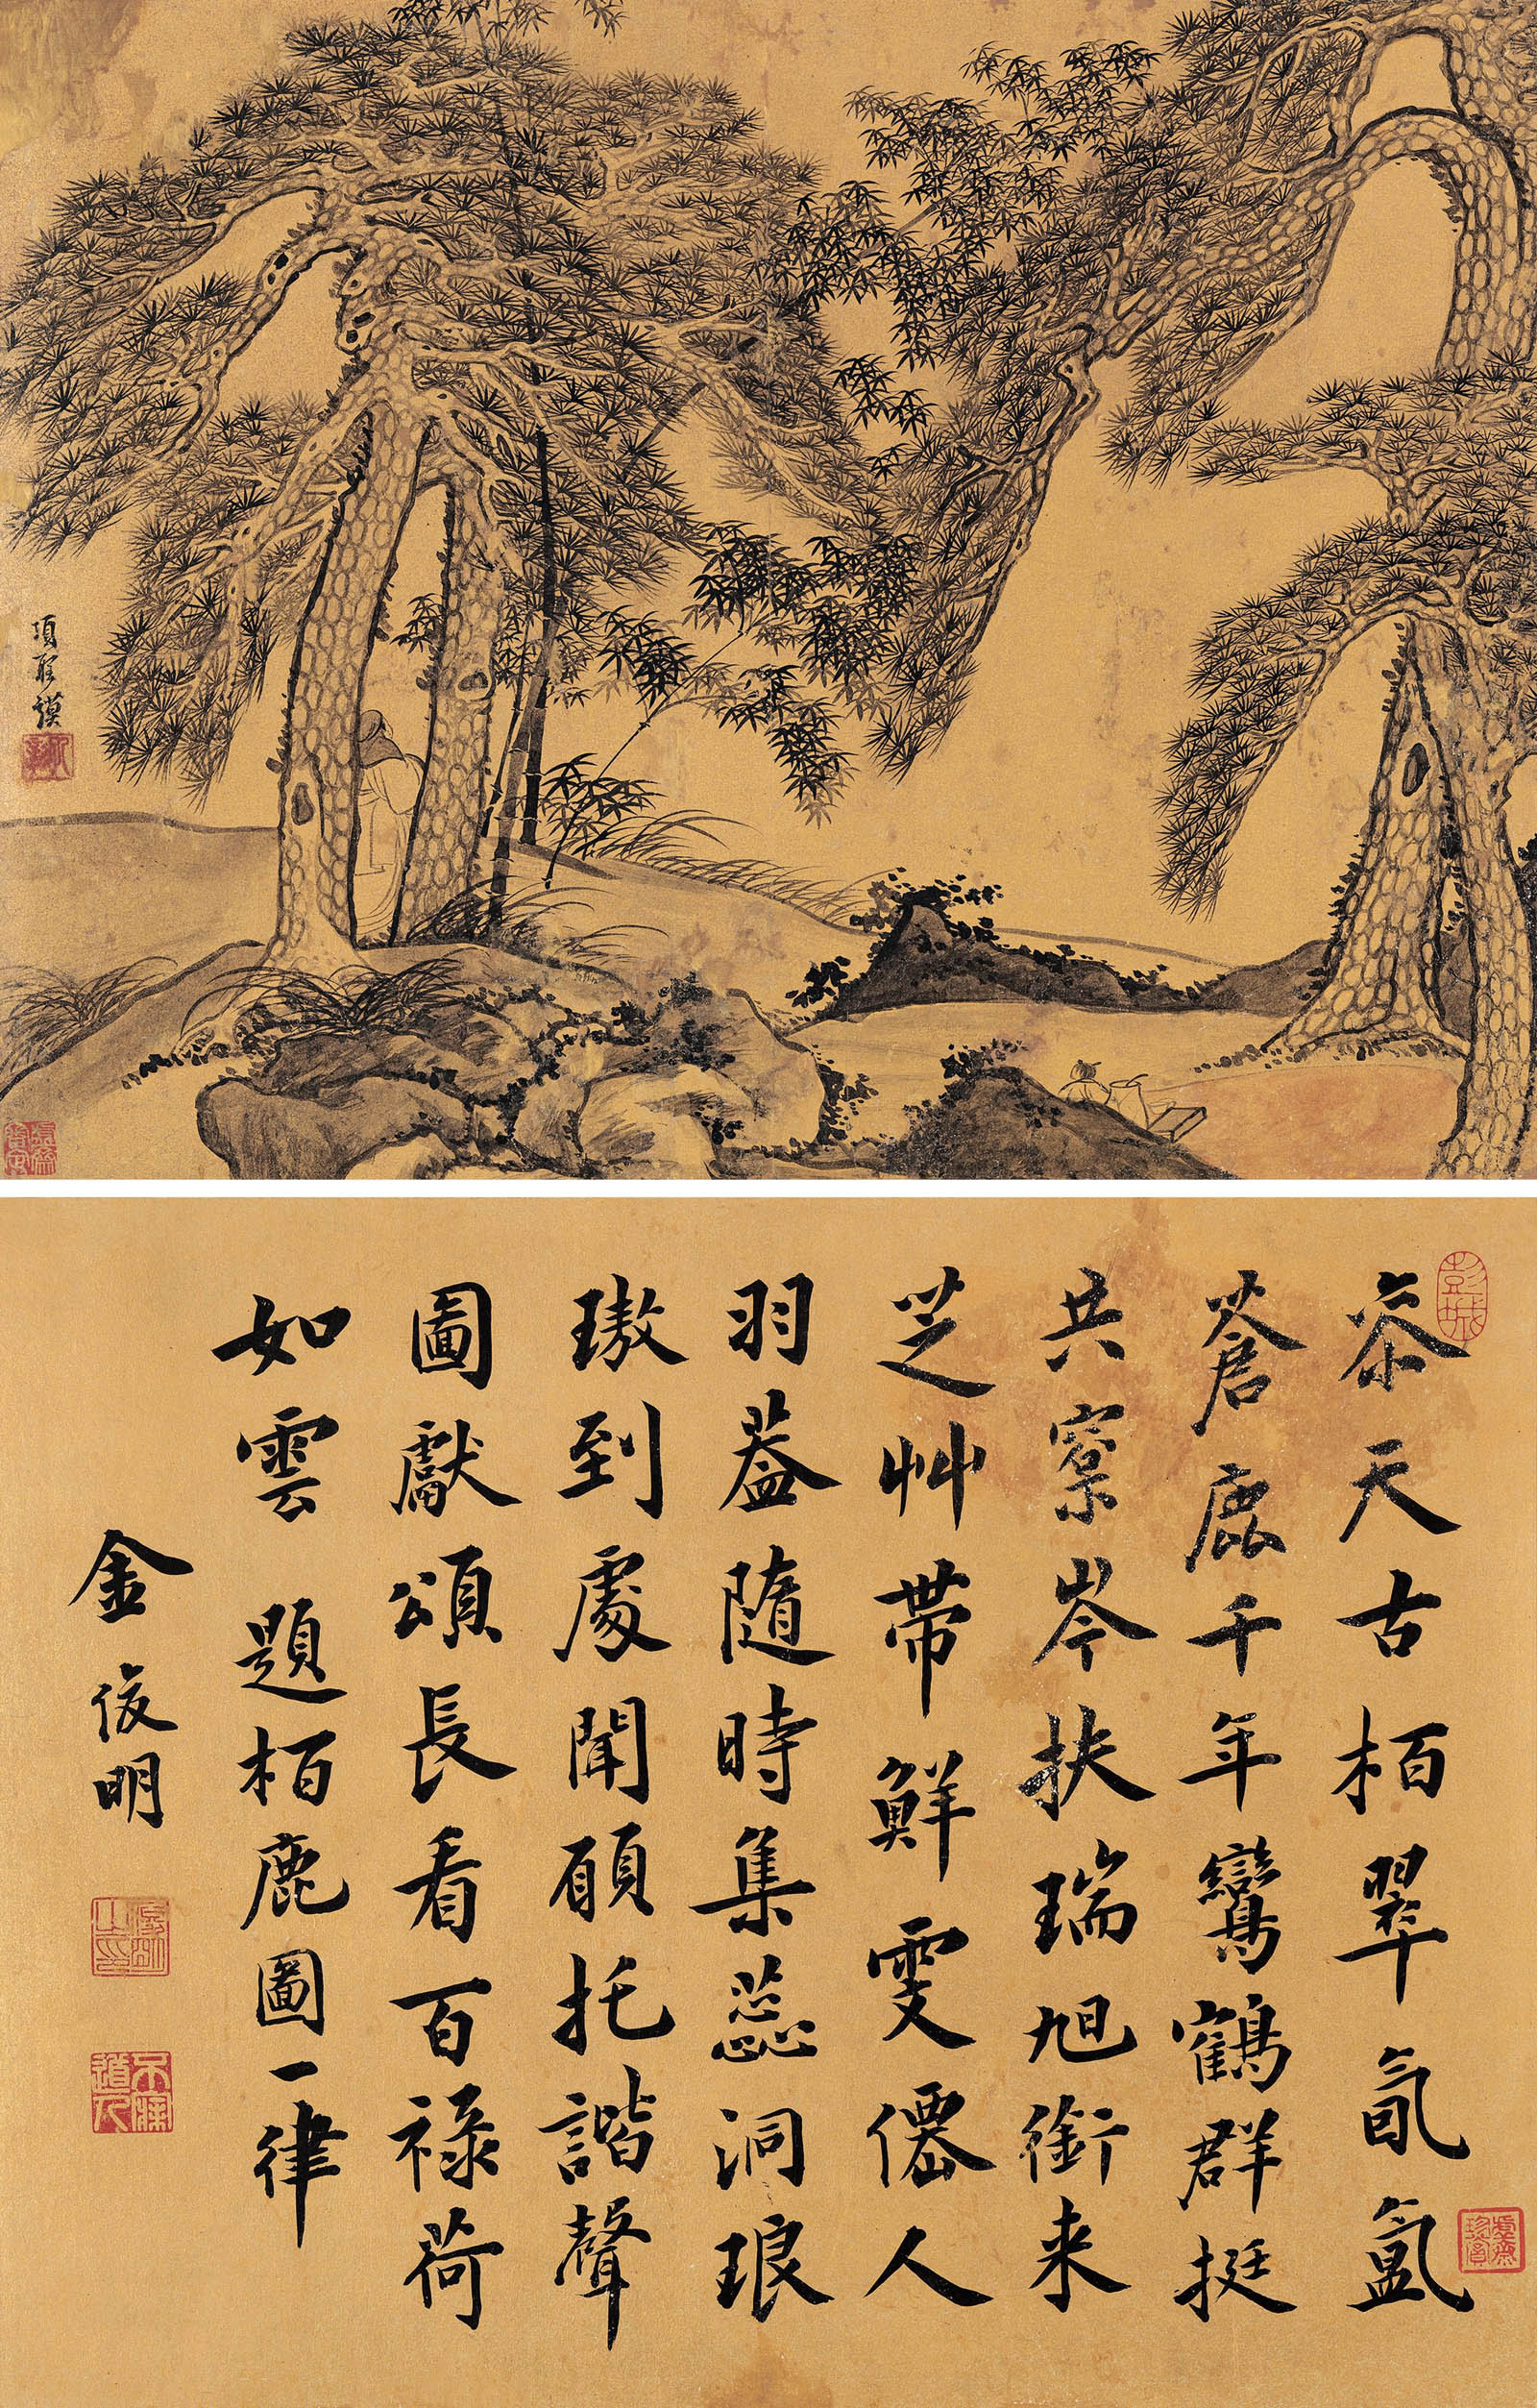 項聖謨
參天古栢翠氤氳
蒼鹿千年鸞鶴群挺
共寮岑扶瑞旭銜来
芝艸帶鮮雯僊人
羽葢隨時集蕊洞琅
璈到處聞願托諧聲
圖獻頌長看百祿荷
如雲 題栢鹿圖一律
金俊明
彭城